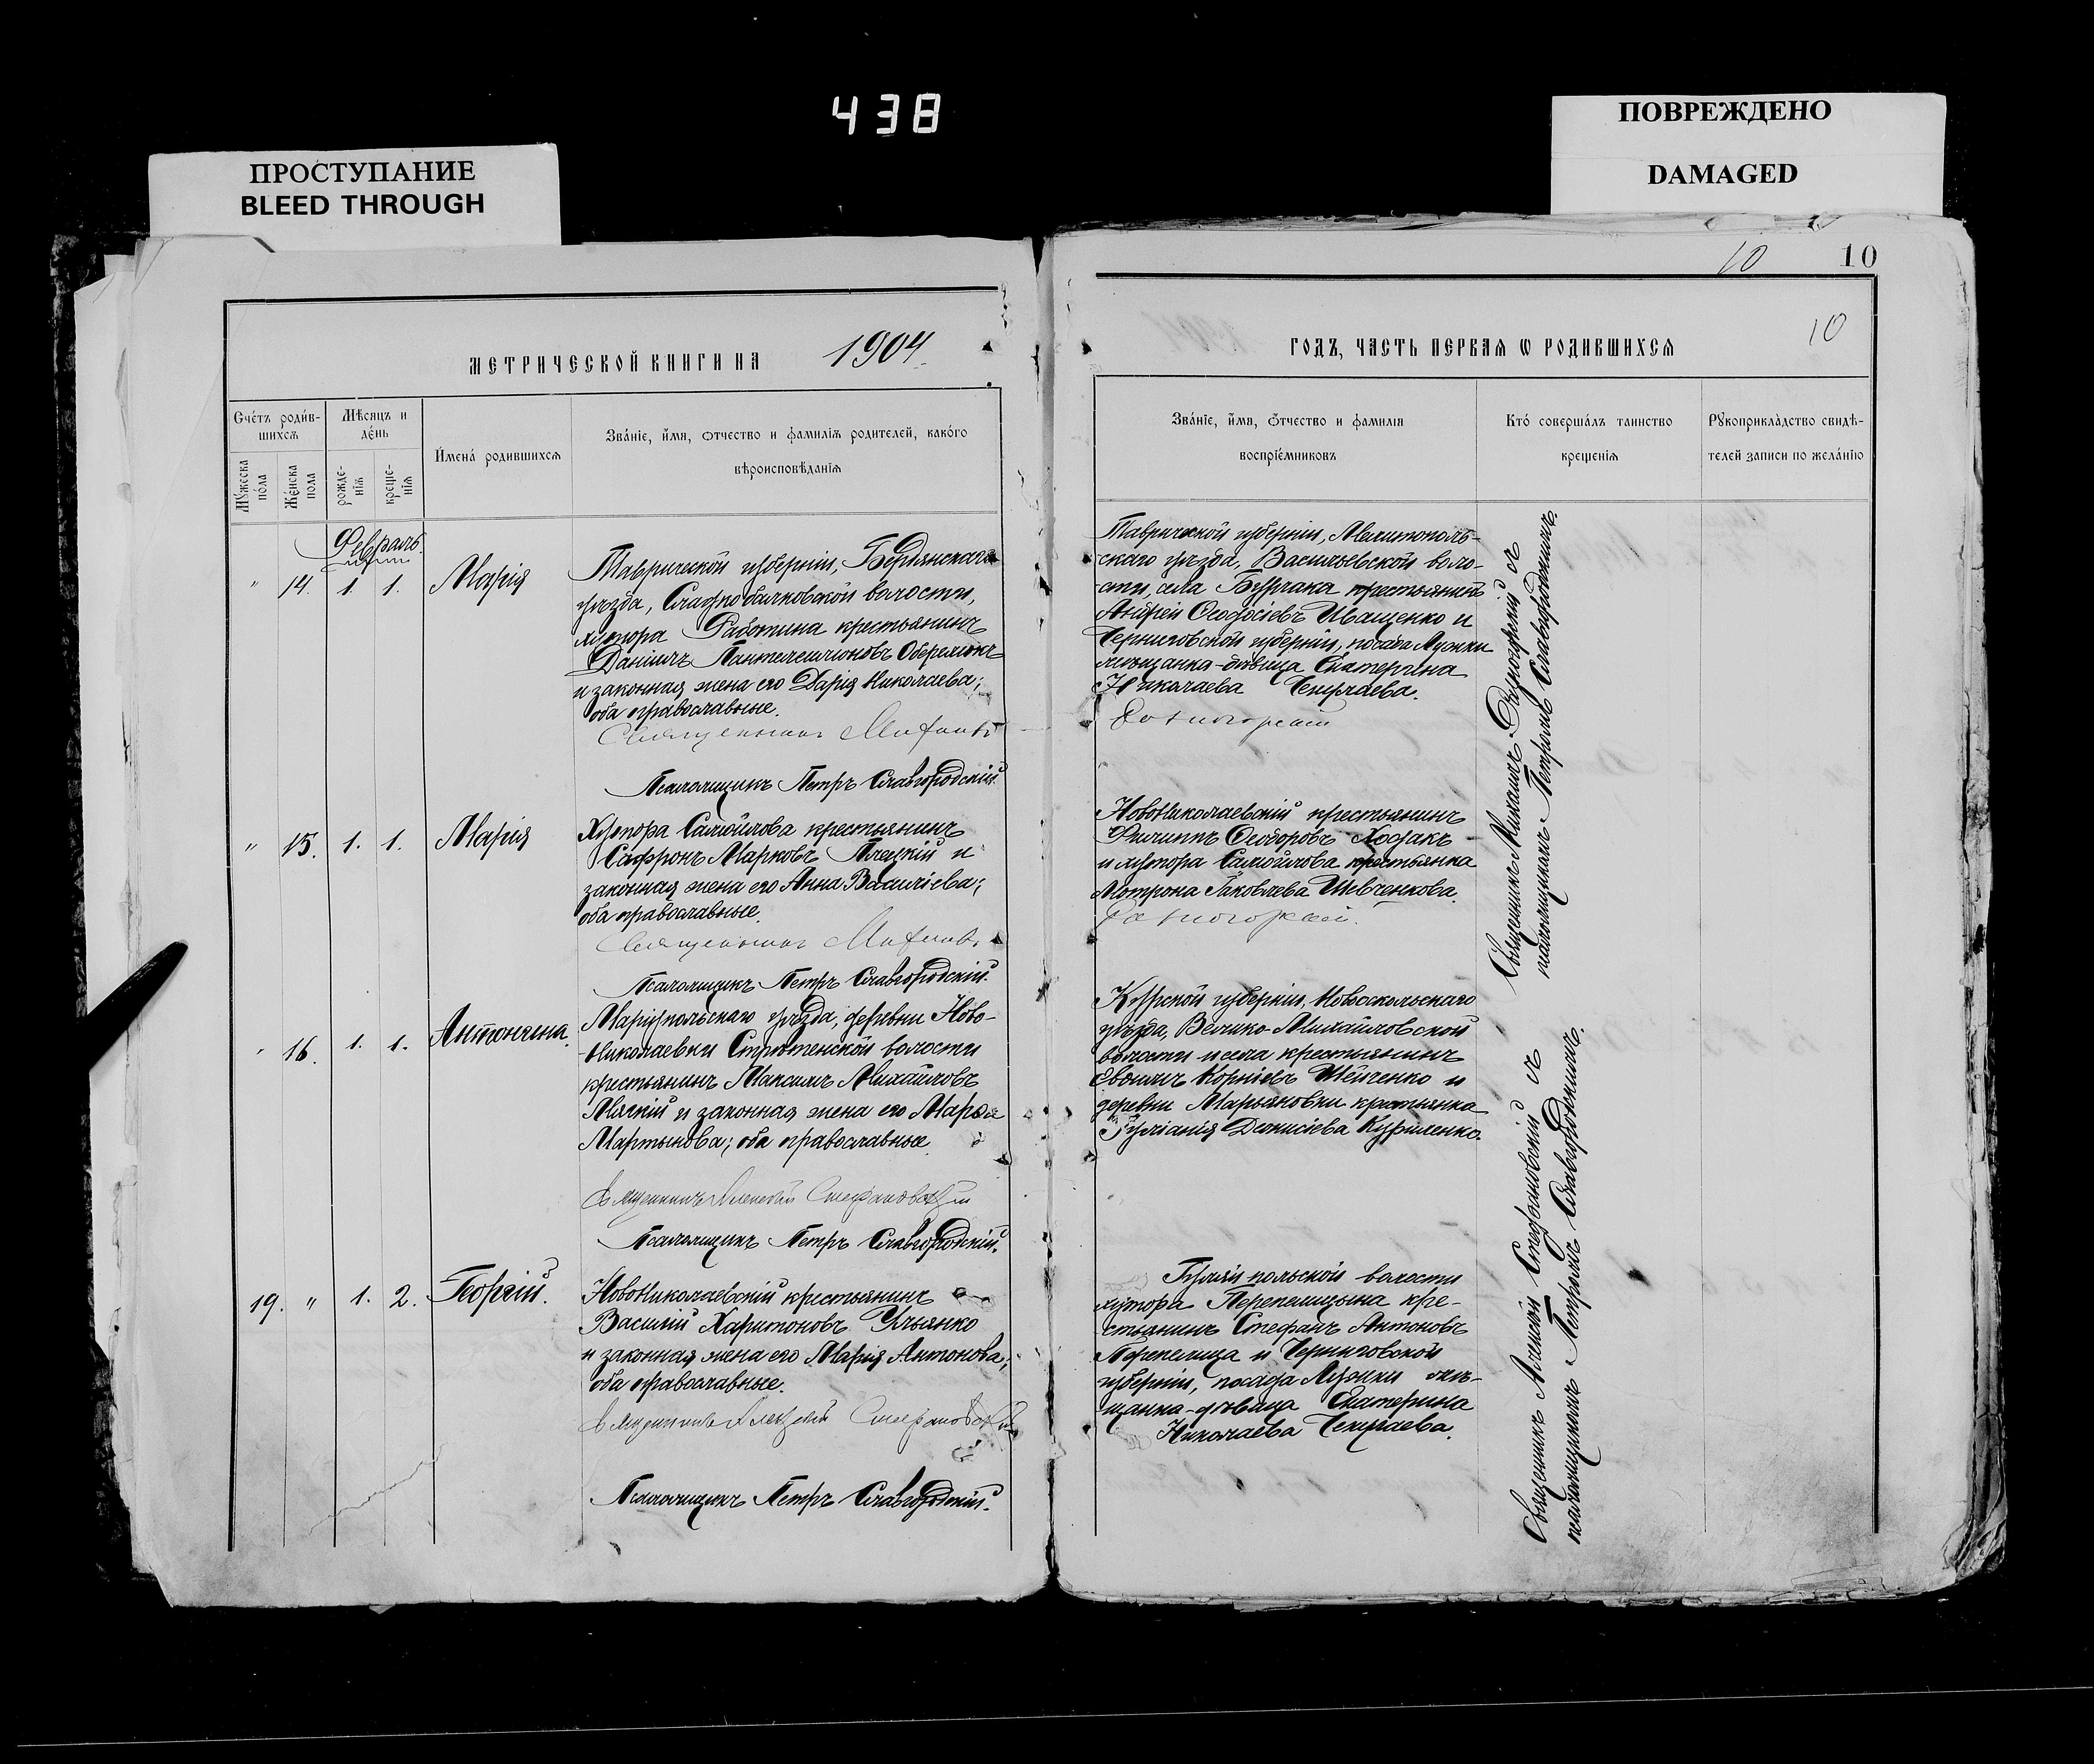 438
ПРОСТУПАНИЕ
BLEED THROUGH
ПОВРЕЖДЕНО
DAMAGED
10 10
10
МЕТРИЧЕСКОЙ КНИГИ НА 1904
Счётъ родив-
шихся
Мѣсяцъ и
день
Имена родившихся
Званіе, имя, отчество и фамилія родителей, какого
вѣроисповѣданія
Мужеска
пола
Женска
пола
рожде-
нія
креще-
нія
Февраль.
" 14. 1. 1. Марія
Таврической губерніи, Бердянскаго
уѣзда, Сладкобалковской волости,
хутора Работина крестьянинъ
Даніилъ Пантелеимоновъ
и законная жена его Дарія Николаева;
оба православные.
Священникъ
Псаломщикъ Петръ Славгородскій.
" 15. 1. 1. Марія
Хутора Самойлова крестьянинъ
Сафронъ Марковъ и
законная жена его Анна Василіева;
оба православные.
Священникъ
Псаломщикъ Петръ Славгородскій.
" 16. 1. 1. Антонина.
Маріупольскаго уѣзда, деревни Ново-
Николаевки волости
крестьянинъ Максимъ Михайловъ
Мягкій и законная жена его Марѳа
Мартынова; оба православные.
Священникъ Алексѣй Стефановскій
Псаломщикъ Петръ Славгородскій.
19. " 1. 2. Георгій.
НовоНиколаевскій крестьянинъ
Василій Харитоновъ Ульянко
и законная жена его Марія Антонова;
оба православные.
Священникъ Алексѣй Стефановскій
Псаломщикъ Петръ Славгородскій.
ГОДЪ, ЧАСТЬ ПЕРВАЯ Ѡ РОДИВШИХСЯ
Званіе, имя, отчество и фамилія
воспріемниковъ
Кто совершалъ таинство
крещенія
Рукоприкладство свидѣ-
телей записи по желанію
Таврической губерніи, Мелитополь-
скаго уѣзда, Васильевской воло-
сти, села Бурчака крестьянинъ
Андрей Ѳеодосіевъ Иващенко и
Черниговской губерніи, посада Лужки
мѣщанка-дѣвица Екатерина
Николаева Чекулаева.
НовоНиколаевскій крестьянинъ
Филиппъ Ѳеодоровъ Ходакъ
и хутора Самойлова крестьянка
Мотрона Іаковлева Шевченкова.
Курской губерніи, Новооскольскаго
уѣзда, Велико-Михайловской
волости и села крестьянинъ
Евѳимъ Корніевъ Шейченко и
деревни Марьяновки крестьянка
Іуліанія Діонисіева Куриленко.
Гуляйпольской волости
хутора Перепелицына кре-
стьянинъ Стефанъ Антоновъ
Перепелица и Черниговской
губерніи, посада Лужки мѣ-
щанка-дѣвица Екатерина
Николаева Чекулаева.
Священникъ Михаилъ съ
псаломщикомъ Петромъ Славгородскимъ.
Священникъ Алексѣй Стефановскій съ
псаломщикомъ Петромъ Славгородскимъ.